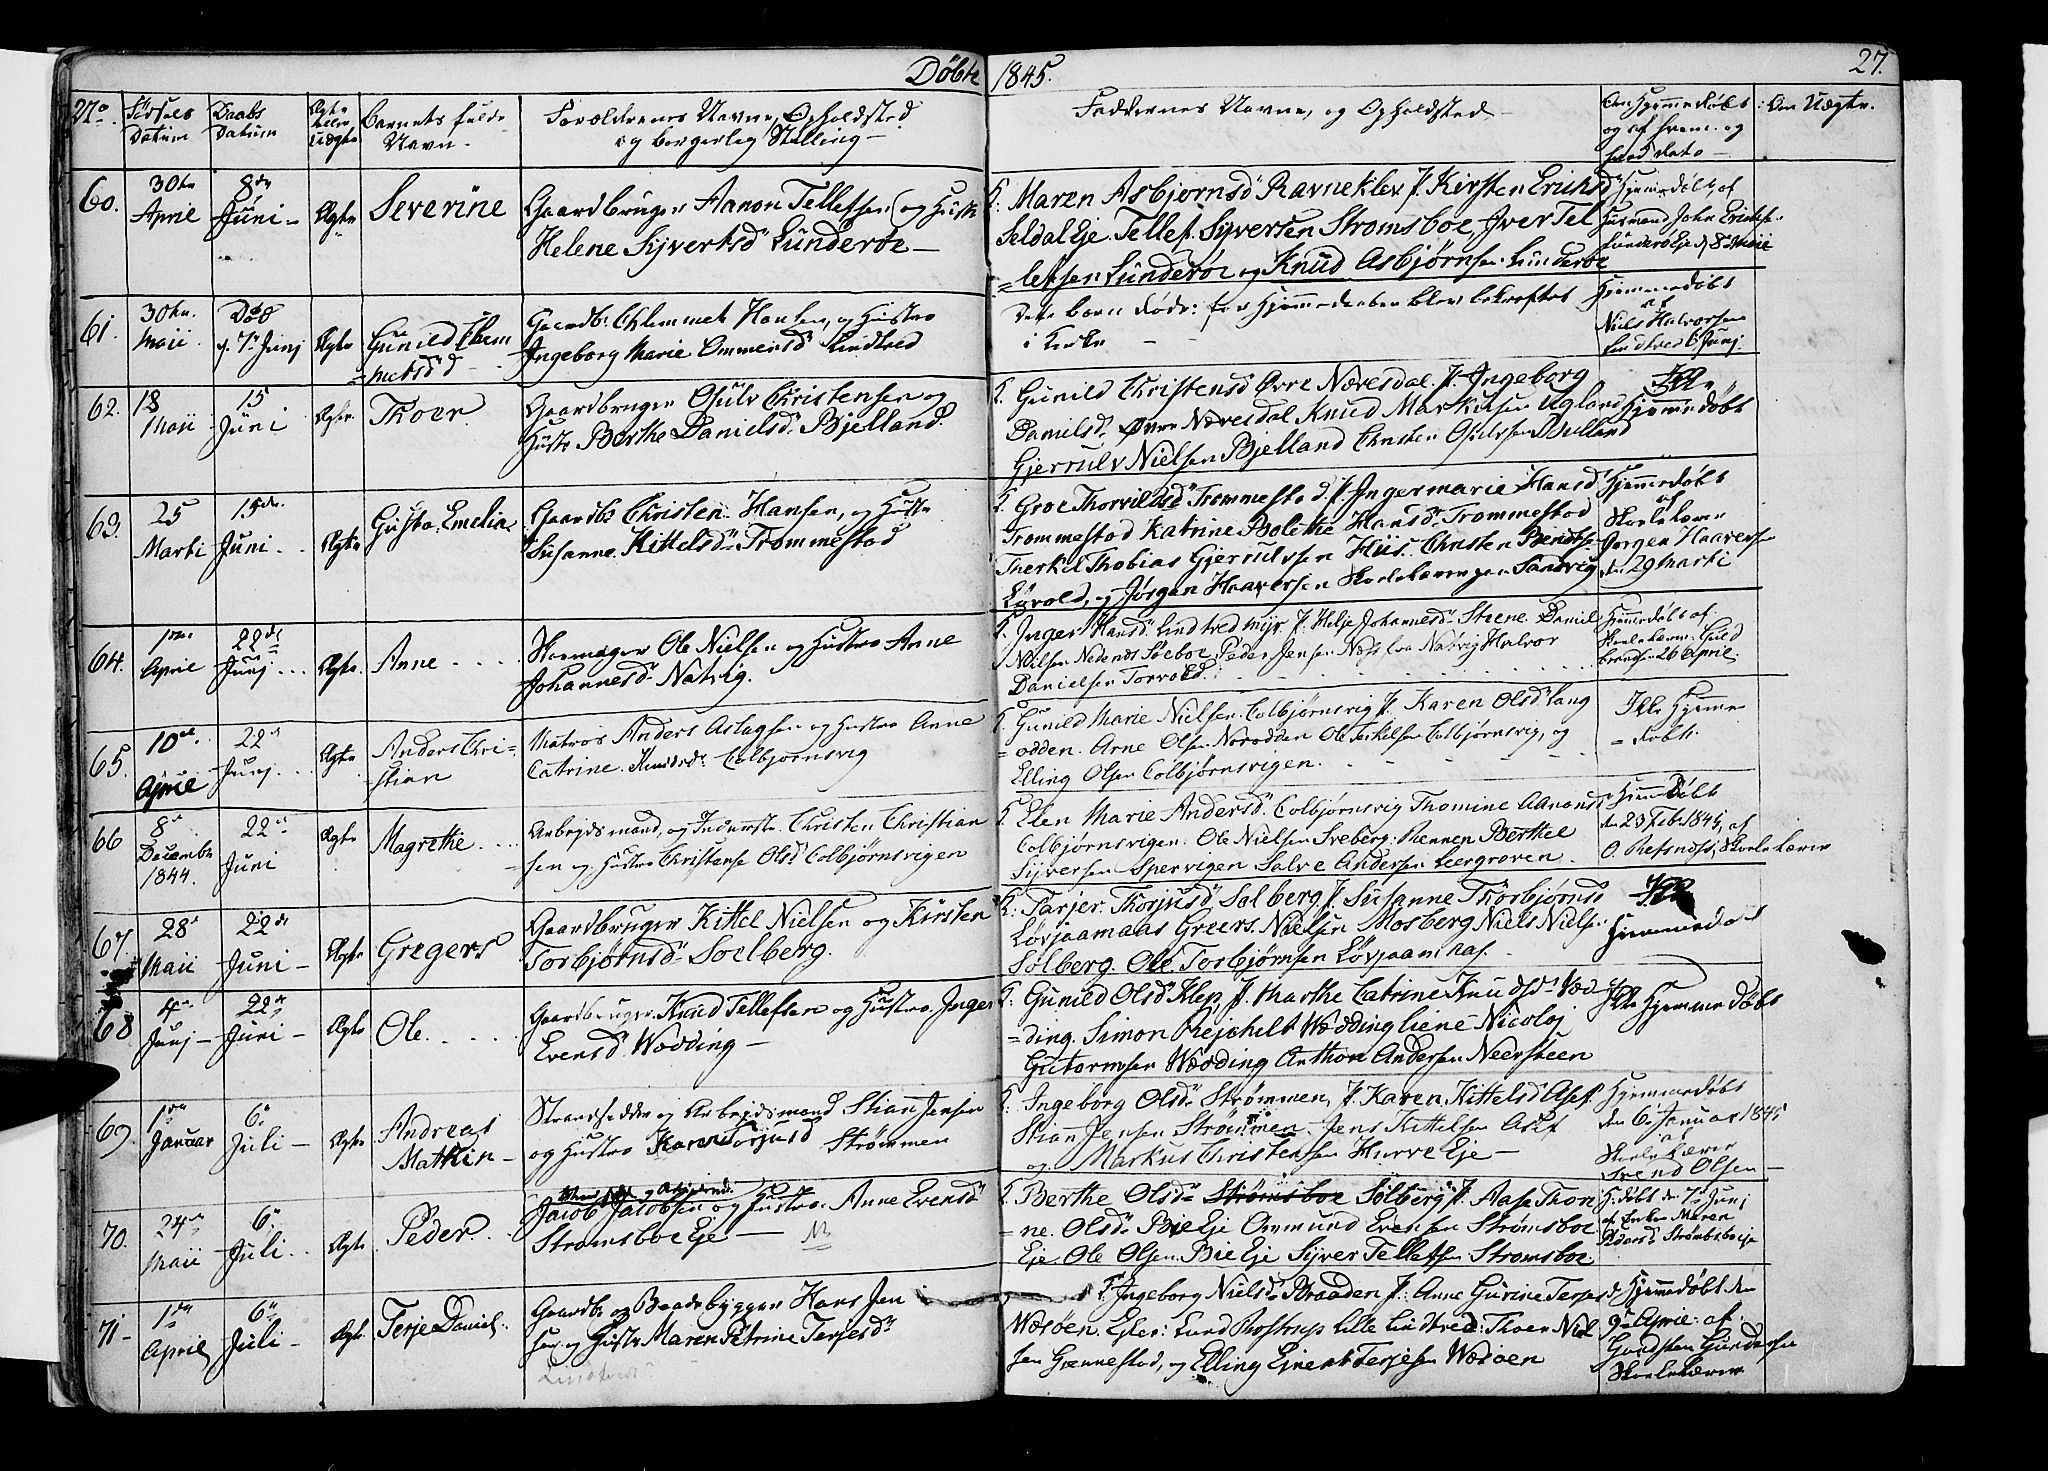 Döbte 1845. 27.
No. Födsels Datum Daabs Datum Ægte eller Uægte Barnets fulde Navn. Forældrenes Navne, Opholdsted og borgerlig Stilling Faddernes Navne, og Opholdsted Om Hjemmedöbt og af hvem og hvad Dato Om Uægte.
60. 30te April 8de Juni Ægte Severine
Gaardbruger Aanon Tellefsen og Hustr
Helene Syvertsd Lunderöe
F. Maren Asbjornsd Ravneklev J. Kirsten Erichsd
Seldal Eje. Tellef Syversen Stromsboe, Iver Tel
lefsen Lunderöe og Knud Asbjørnsen Lunderöe
Hjemmedöbt af
Husmand John Erichse
Lunderö Eje d 8 Maii
61. 30te Maii. Död d. 7de Junj Ægte Gunild Clem
metsd
Gaardb. Clemmet Hansen, og Hustro
Ingeborg Marie Ommensd Lindtved
Dette barn döde för Hjemmedaaben blev bekræftet
i Kirke
Hjemmedöbt
af
Niels Halvorsen
Lindtved 6 Junj.
62. 18 Maii 15 Juni Ægte Thoer.
Gaardbruger Osulv Christensen og
Hustr Berthe Danielsd. Bjelland.
F. Gunild Christensd Øvre Nævesdal J. Ingeborg
Danielsd. Øvre Nævesdal Knud Markusen Ugland
Gjerrulv Nielsen Bjelland Christen Osulvsen Bjelland
Ikke
Hjemmedöbt
63. 25 Marti 15de Juni Ægte Gusta Emelia
Gaardb Christen Hansen, og Hustr
Susanne Kittelsd. Trommestad
F. Groe Thorvildsd Trommestad. J. Ingermarie Hansd
Trommestad Katrine Bolette Hansd. Trommestad
Therkil Thobias Gjerulvsen Hiis. Christen Berntse
Løvold, og Jørgen Haaversen Skolelærer paa Sandvig
Hjemmedöbt
af
Skolelærer
Jørgen Haaverse
den 29 Marti
64. 1ste April 22de Junj Ægte Anne
Skomager Ole Nielsen og Hustro Anne
Johannesd. Natvig.
F. Inger Hansd. Lindtved myr J. Helje Johannesd. Steene Daniel
Nielsen Nedenæs Soeboe, Peder Jensen Næs fra Natvig Halvor
Danielsen Torvold.
Hjemmedöbt af
Skolelærer Guld
brandsen 26 April.
65. 10de April 22de Junj Ægte Anders Chri
stian
Matros Anders Aslagsen og Hustro Anne
Catrine Knudsd. Colbjornsvig
F. Gunild Marie Nielsen. Colbjørnsvig J. Karen Olsd. Lang
odden. Arne Olsen Norodden Ole Terkelsen Colbjørnsvig, og
Elling Olsen Colbjørnsvigen.
Ikke Hjemme
döbt.
66 8de Decembr 1844. 22de Juni Ægte Magrethe
Arbejdsmand, og Inderste Christen Christian
sen og Hustro Christense Olsd Colbjørnsvigen
F. Elen Marie Andersd. Colbjørnsvig Thomine Aanonds
Colbjørnsvigen. Ole Nielsen Sveberg. Rennen Berthel
Syversen Spervigen Salve Andersen Leergroven.
Hjemmedöbt
den 23 Feb 1845, af
O. Refsnæs, Skolelærer
67. 28de Maii 22de Juni Ægte Gregers
Gaardbruger Kittel Nielsen og Kirsten
Torbjørnsd. Soelberg.
F. Tarjer Thorjusd Solberg, J. Susanne Thorbjørnsd
Løvjaamaas Greers. Nielsen Mosberg Niels Nielse
Sølberg. Ole Torbjørnsen Løvjaamaas.
Ikke
Hjemmedöbt
68 4de Junj 22de Juni Ægte Ole
Gaardbruger Knud Tellefsen og Hustro Inger
Evensd. Wædding
F. Gunild Olsd Klep, J. Marthe Catrine Knudsd. Wæd
ding. Simon Rejchelt Wæddingliene Nicoloj
Gutormsen Wædding Anthon Andersen Neersteen
Ikke Hjemmedöbt
69 1ste Januar 6te Juli Ægte Andreas
Mathin
Strandsidder og Arbejdsmand Stian Jensen
og Hustro Karen Torjusd Strömmen
F. Ingeborg Olsd. Strømmen, J. Karen Kittelsd Asef
Stian Jensen Strømmen. Jens Kittelsen Asef
og Markus Christensen Hurve Eje
Hjemmedöbt
den 6te Januar 1845
af
Skolelærer
Svend Olsen
70. 24de Maii 6te Juli Ægte Peder.
Jacob Jacobsen og Hustro Anne Evensd
Stromsboe Eje NB
F. Berthe Olsd. Strömsboe Sölberg J. Aase Thon
ne. Olsd. Bie Eje Ommund Evensen Strömsboe
Eje. Ole Olsen Bie Eje Syver Tellefsen Stromsboe
H. döbt den 7de Junj
af Enken Maren
Pedersd. Strömsboeje
71 1ste April 6te Juli Ægte Terje Daniel
Gaardb og Baadebygger Hans Jen
sen og Hustr Maren Petrine Terjesd
Lindtved
F. Ingeborg Nielsd. Braaden J. Anne Gurine Terjesd
Wæröen. Efter: Lund Rostrup Lille Lindtved: Thoer Niel
sen Grennestad, og Elling Ejvent Terjesen Wæröen
Hjemmedöbt den
9de April af
Gundsten Gundersen
Skolelærer